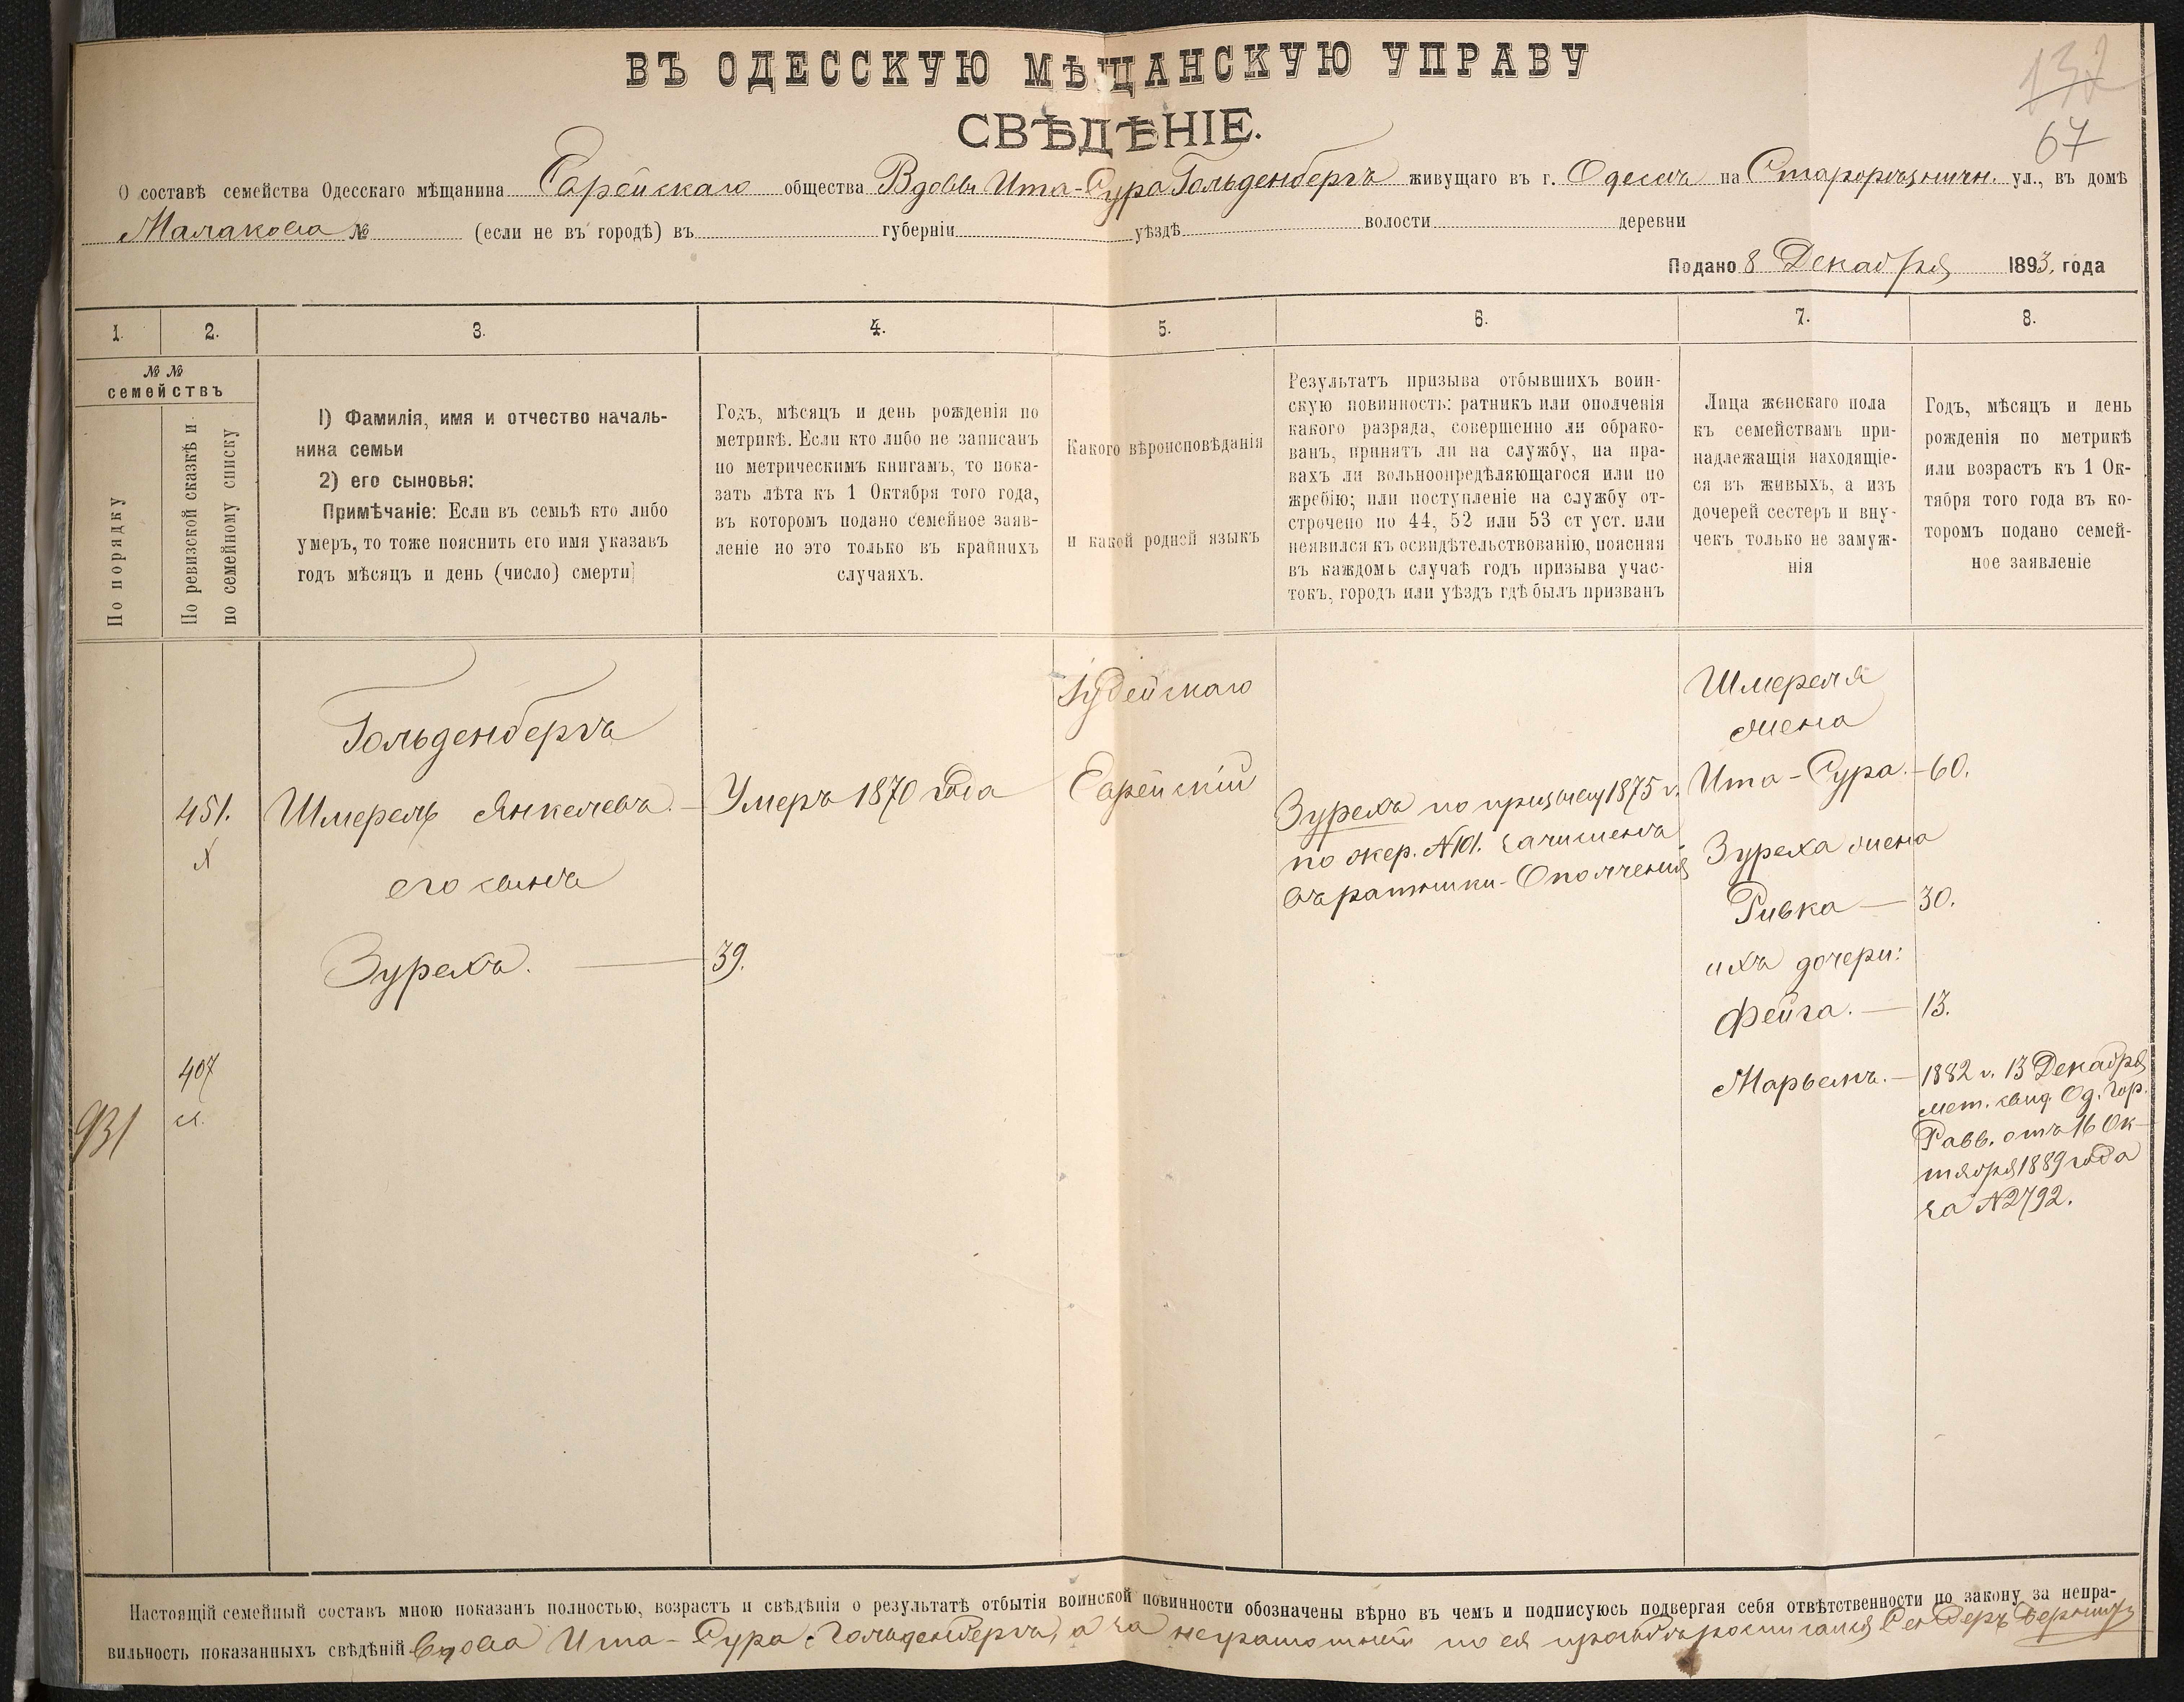 ВЪ ОДЕССКУЮ МѢЩАНСКУЮ УПРАВУ
СВѢДѢНІЕ.
132
67
О составѣ семейства Одесскаго мѣщанина Еврейскаго общества Вдовы Ита-Сура Гольденбергъ живущаго въ г. Одессѣ на Старорѣзничн. ул., въ домѣ
Малакова № (если не въ городѣ) въ губерніи уѣздѣ волости деревни
Подано 8 Декабря 1893, года
1. 2. 3. 4. 5. 6. 7. 8.
№ №
семействъ
По порядку
По ревизской сказкѣ и
по семейному списку
1) Фамилія, имя и отчество началь-
ника семьи
2) его сыновья:
Примѣчаніе: Если въ семьѣ кто либо
умеръ, то тоже пояснить его имя указавъ
годъ мѣсяцъ и день (число) смерти]
Годъ, мѣсяцъ и день рожденія по
метрикѣ. Если кто либо не записанъ
по метрическимъ книгамъ, то пока-
зать лѣта къ 1 Октября того года,
въ которомъ подано семейное заяв-
леніе но это только въ крайнихъ
случаяхъ.
Какого вѣроисповѣданія
и какой родной языкъ
Результатъ призыва отбывшихъ воин-
скую повинность: ратникъ или ополченія
какого разряда, совершенно ли обрако-
ванъ, принятъ ли на службу, на пра-
вахъ ли вольноопредѣляющагося или по
жребію; или поступленіе на службу от-
строчено по 44, 52 или 53 ст уст. или
неявился къ освидѣтельствованію, поясняя
въ каждомъ случаѣ годъ призыва учас-
токъ, городъ или уѣздъ гдѣ былъ призванъ
Лица женскаго пола
къ семействамъ при-
надлежащія находящіе-
ся въ живыхъ, а изъ
дочерей сестеръ и вну-
чекъ только не замуж-
нія
Годъ, мѣсяцъ и день
рожденія по метрикѣ
или возрастъ къ 1 Ок-
тября того года въ ко-
торомъ подано семей-
ное заявленіе
931
451.
407
Гольденбергъ
Шмерель Янкелевъ. —
его сынъ
Зурехъ. —
Умеръ 1870 года
39.
Іудейскаго
Еврейскій
Зурехъ по призыву 1875 г.
по жер. №101. зачисленъ
въ ратники-Ополченія
Шмереля
жена
Ита-Сура. — 60.
Зуреха жена
Ривка — 30.
ихъ дочери:
Фейга. — 13.
Марьемъ. — 1882 г. 13 Декабря
мет. свид. Од. Гор.
Равв. отъ 16 Ок-
тября 1889 года
за №2792.
Настоящій семейный составъ мною показанъ полностью, возрастъ и свѣдѣнія о результатѣ отбытія воинской повинности обозначены вѣрно въ чемъ и подписуюсь подвергая себя отвѣтственности по закону за непра-
вильность показанныхъ свѣдѣній Вдова Ита-Сура Гольденбергъ, а за неграмотной по ея просьбѣ росписался Сендеръ